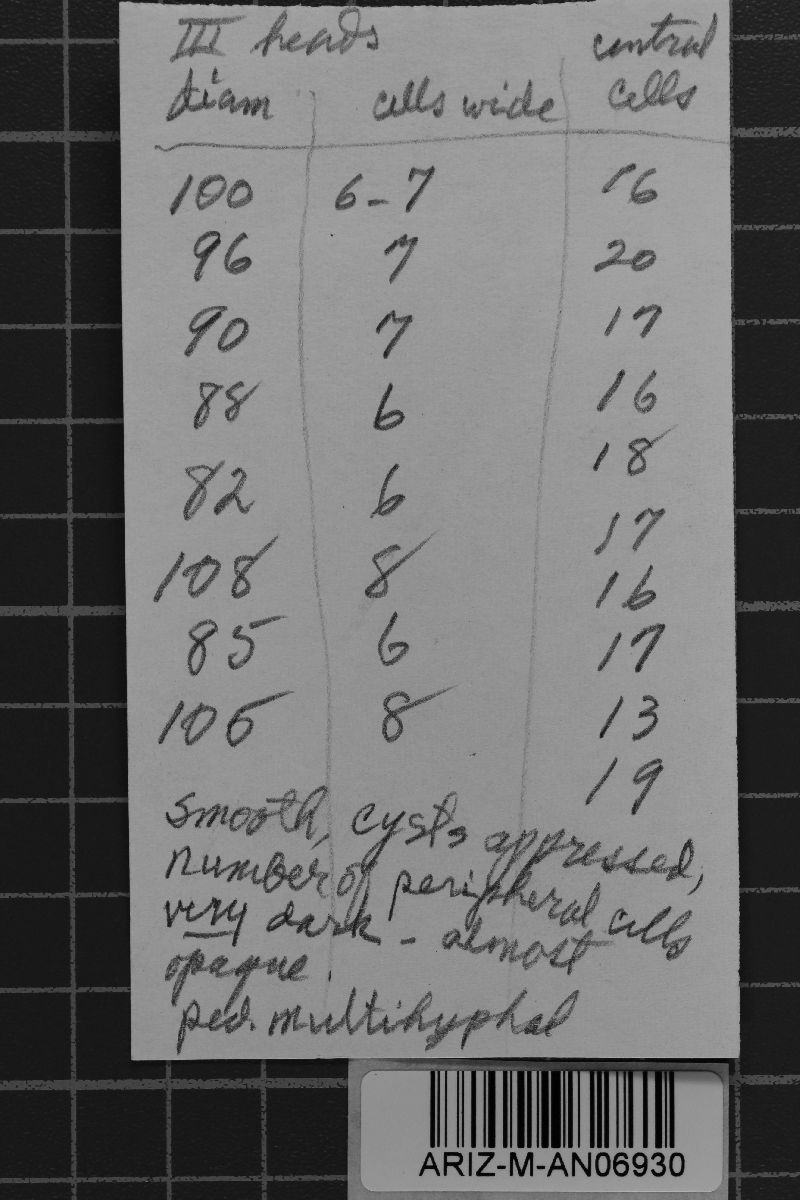 III heads
diam cells wide central cells
100 6-7 16
96 7 20
90 7 17
88 6 16
82 6 18
108 8 17
85 6 16
105 8 17
13
19
Smooth, cysts appressed,
number of peripheral cells
very dark - almost
opaque.
ped. multihyphal
ARIZ-M-AN06930